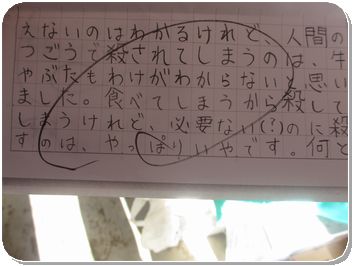 えないのはわかるけれど、人間の
つごうで殺されてしまうのは、牛
やぶたもわけがわからないと思い
ました。食べてしまうから殺して
しまうけれど、必要ない(?)のに殺
すのは、やっぱりいやです。何と